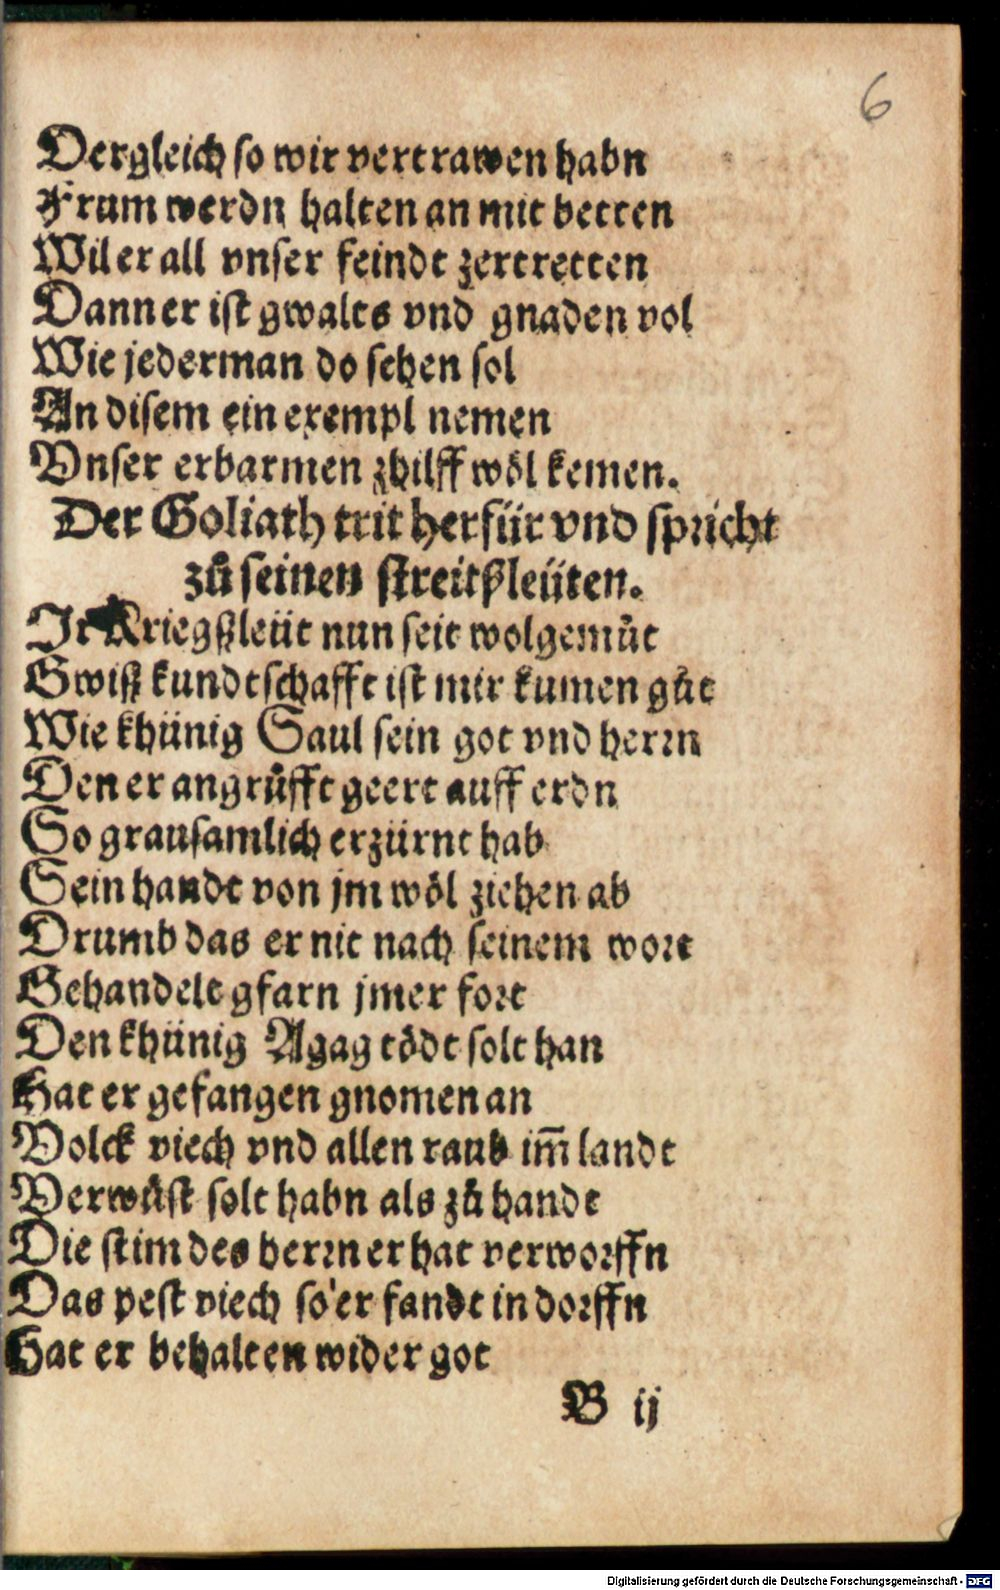 6
Dergleich so wir vertrawen habn
Frum werdn halten an mit betten
Wil er all vnser feindt zertretten
Dann er ist gwalts vnd gnaden vol
Wie jederman do sehen sol
An disem ein exempl nemen
Vnser erbarmen zhilff wöl kemen.
Der Goliath trit herfür vnd spricht
zů seinen streitßleüten.
Ir Kriegßleüt nun seit wolgemůt
Gwiß kundtschafft ist mir kumen gůt
Wie khünig Saul sein got vnd herrn
Den er angrůfft geert auff erdn
So grausamlich erzürnt hab
Sein handt von jm wöl ziehen ab
Drumb das er nit nach seinem wort
Gehandelt gfarn jmer fort
Den khünig Agag tödt solt han
Hat er gefangen gnomen an
Volck viech vnd allen raub im̄ landt
Verwůst solt habn als zů handt
Die stim des herrn er hat verworffn
Das pest viech so er fandt in dorffn
Hat er behalten wider got
B ij
Digitalisierung gefördert durch die Deutsche Forschungsgemeinschaft - DFG